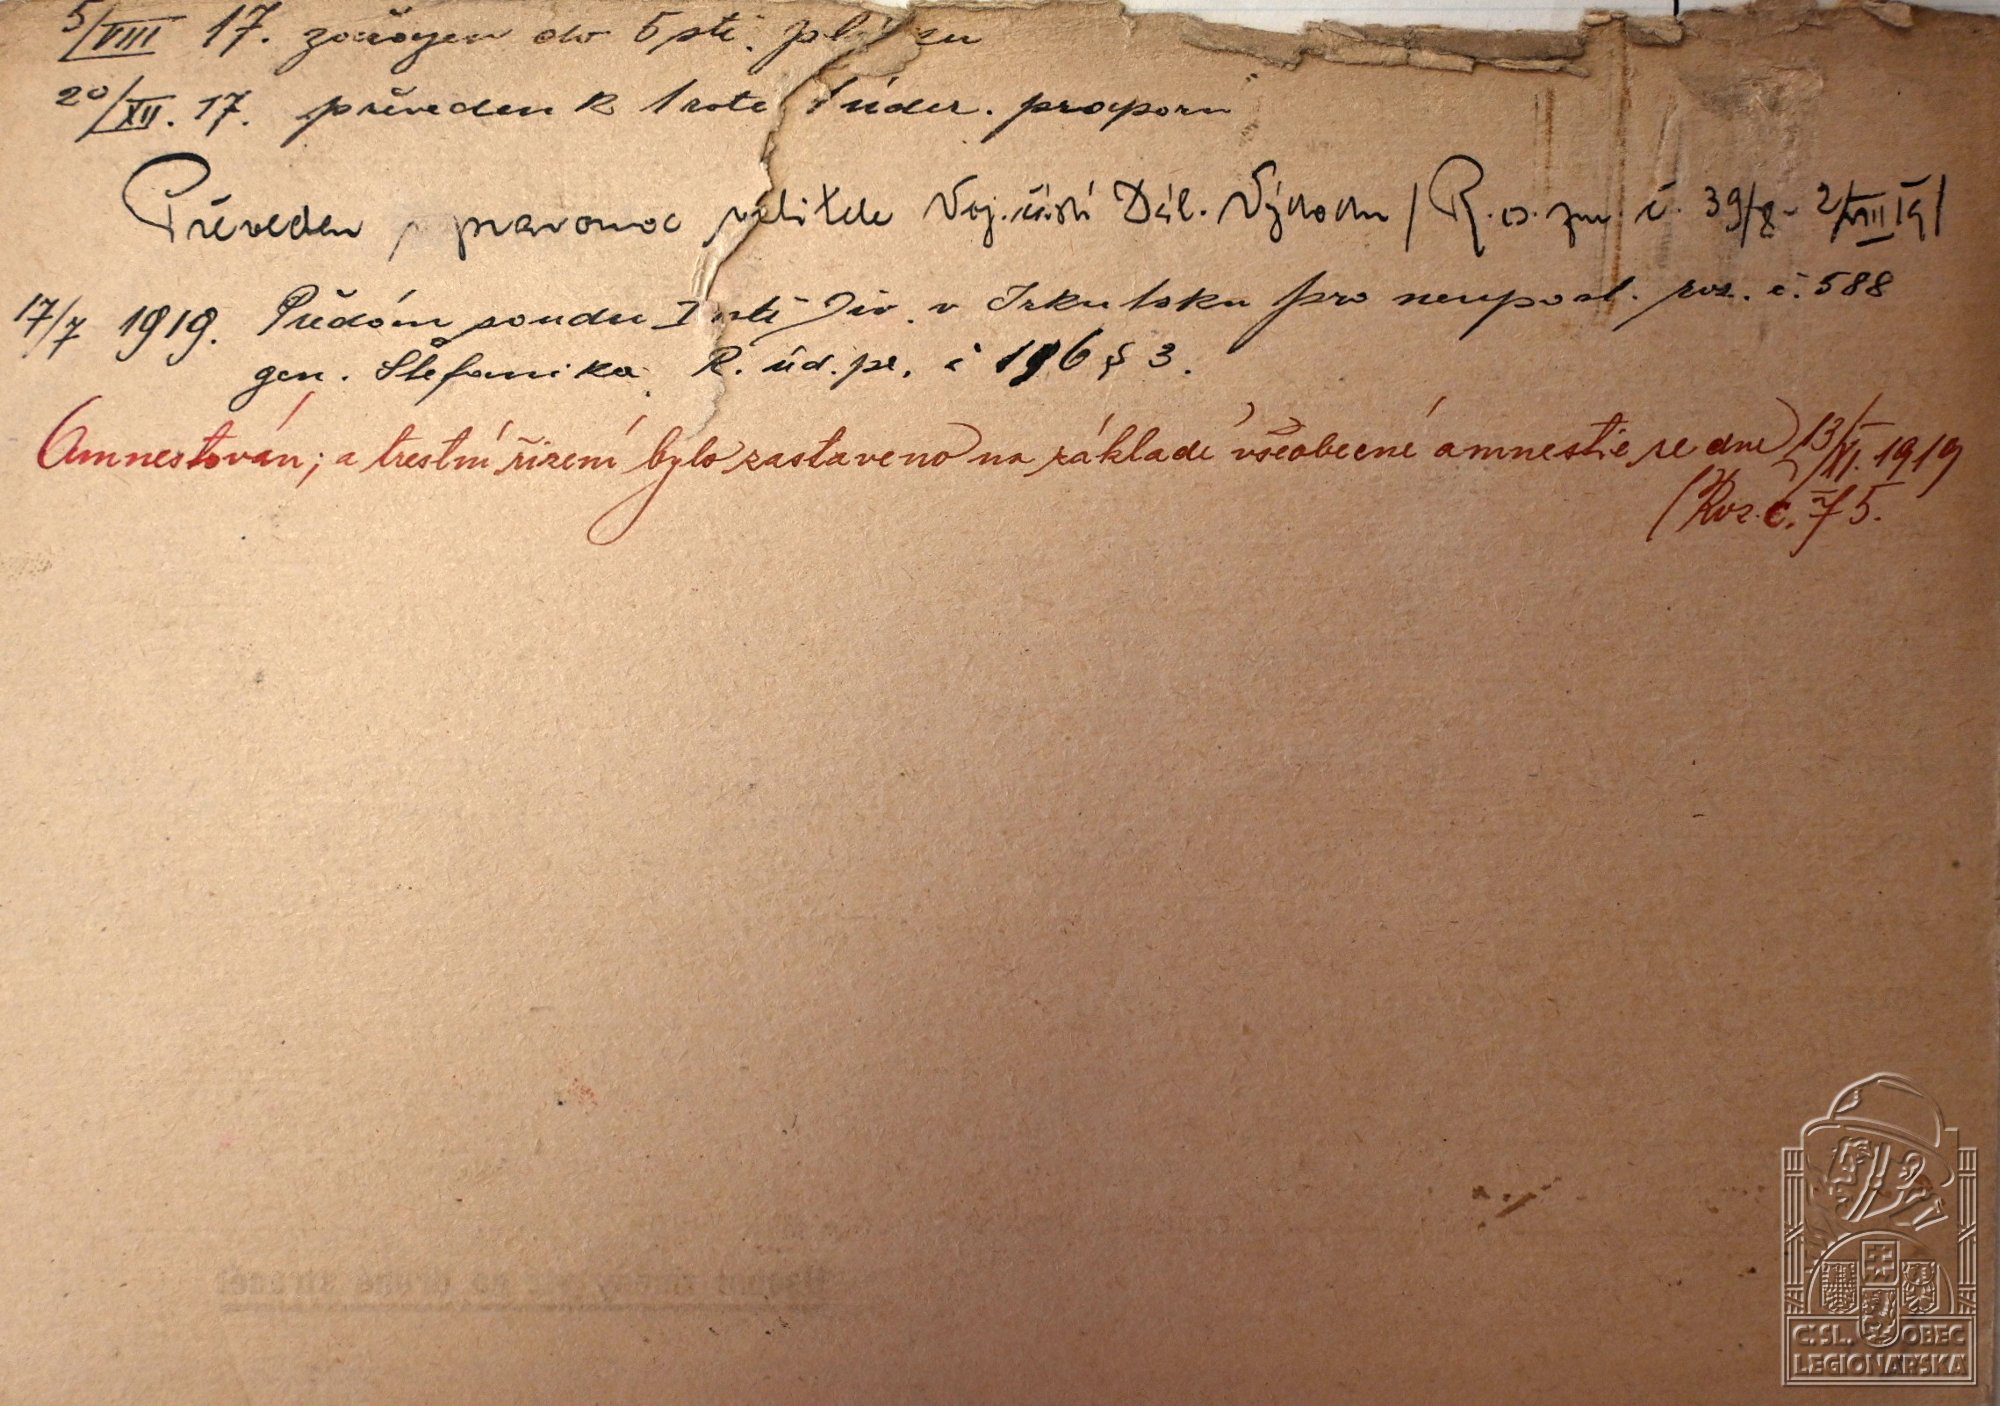 5/VIII 17. zařazen do 5 stř. pluku
20/XII. 17. převeden k 1 rotě úder. praporu
Převeden pravomoc velitele Voj. částí Dál. Východu / R. o. zm. č. 39/8 - 2/VIII 19/
17/7 1919. Předán soudu I stř Div. v Irkutsku pro neuposl. roz. č. 588
gen. Štefanika R. úd. pr. č 196 § 3.
Amnestován; a trestní řízení bylo zastaveno na základě všeobecné amnestie ze dne 13/XI. 1919
(Roz. č. 75.
Č:SL. OBEC
LEGIONÁŘSKÁ